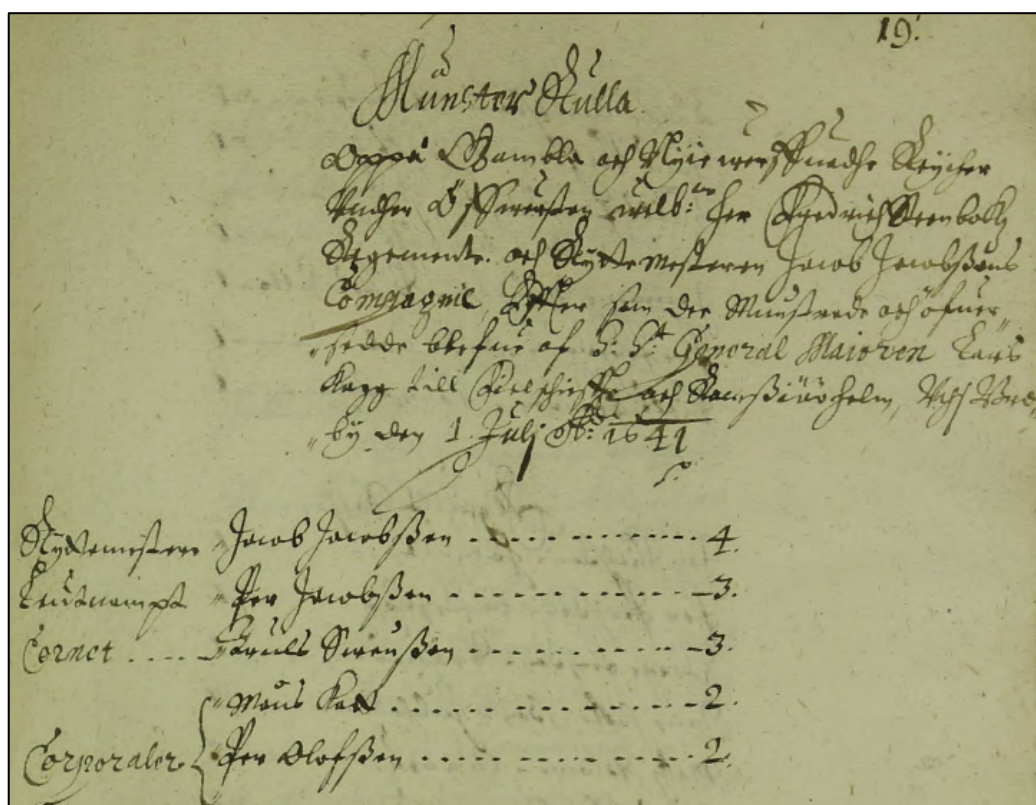 19.
Münster Rulla
Oppå Gambla och Nyie werffuadhe Reyther
Undher Öfwersten welb: her Fredrich Stenbock
Regemente. och Ryttemesteren Jacob Jacobßons
Compagnie, Effter som dee Munstrade och öfuer-
sedde blefue af General Maioren Lars
Kagg till och Ramßiöö holm,
by den 1 Julj A:o 1641
Ryttemestere Jacob Jacobßon 4.
Leutnampt Per Jacobßon 3.
Cornet Truls Swenßon 3.
Måns 2.
Corporaler Per Olofßon 2.